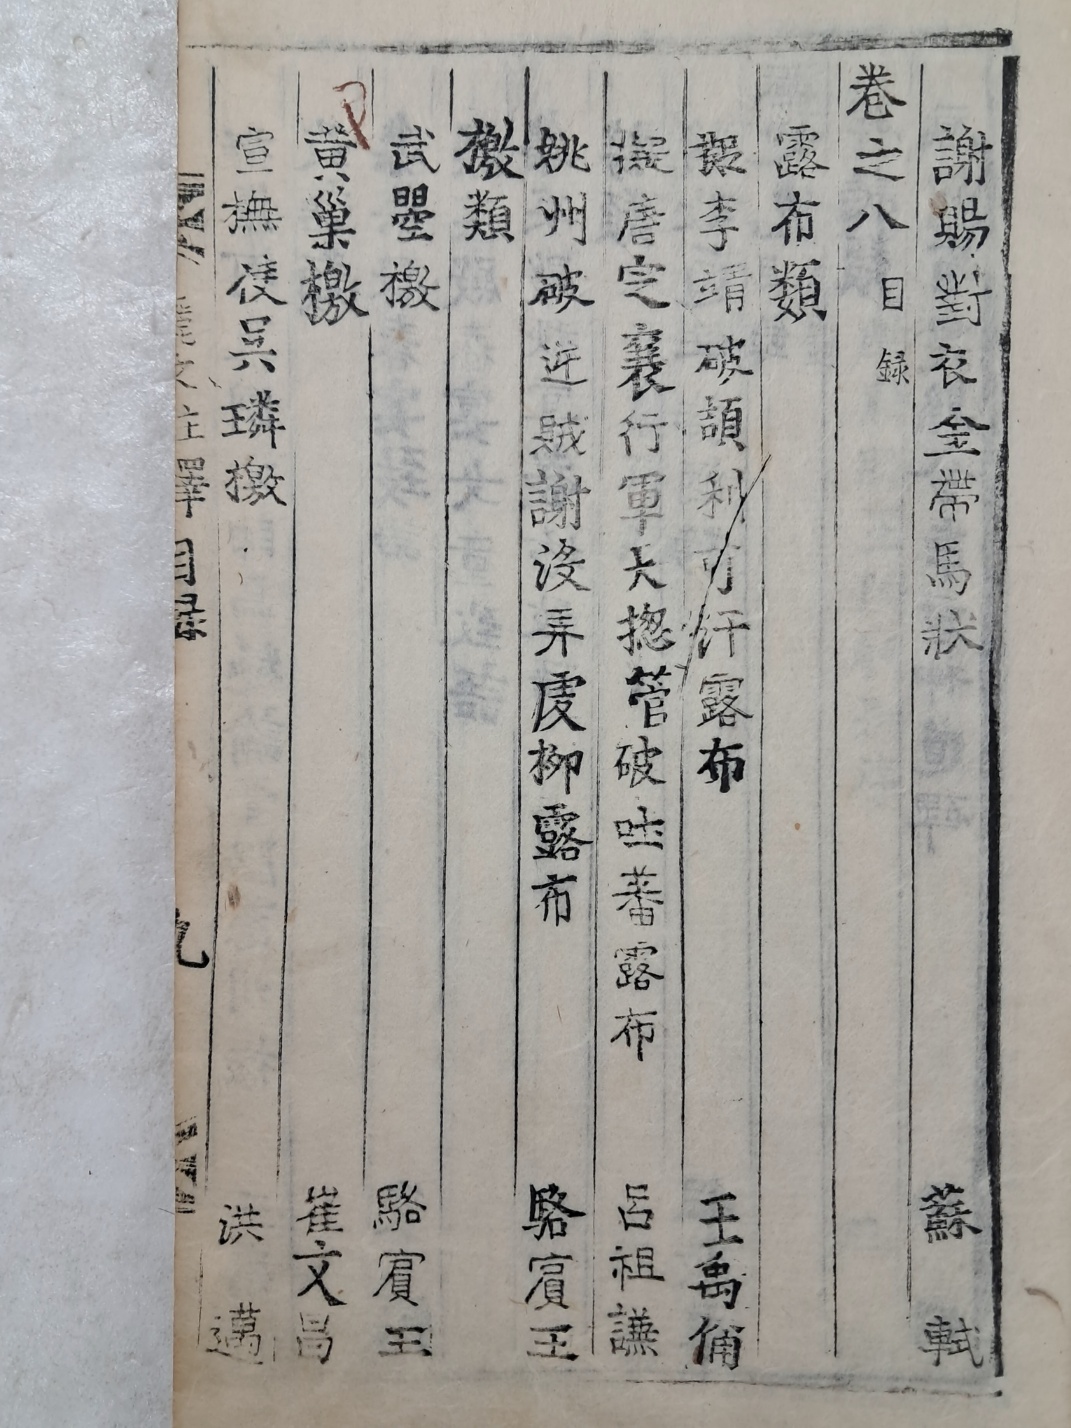 謝賜對衣金帶馬狀 蘇軾
卷之八 目錄
露布類
擬李靖破頡利可汗露布 王禹偁
擬唐定襄行軍大揔管破吐蕃露布 呂祖謙
姚州破逆賊謝沒弄虔柳露布 駱賓王
檄類
武曌檄 駱賓王
黃巢檄 崔文昌
宣撫使吳璘檄 洪邁
文註釋 目錄 九